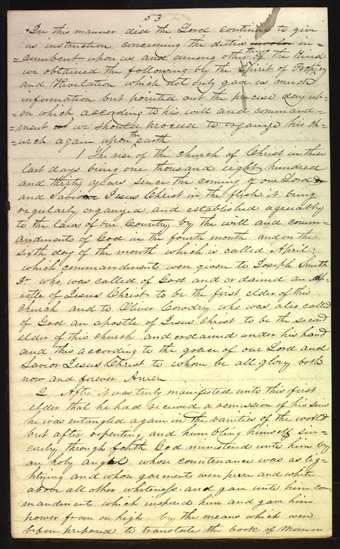 53
In this manner did the Lord continue to give
us instruction concerning the duties in
cumbent upon us and among other of the kind
we obtained the following by the Spirit of Prophecy
and Revelation which not only gave us much
information but pointed out the precise day up
on which according to his will and command
ment we should proceed to organize his ch
urch again upon the earth
1 The rise of the church of Christ in these
last days being one thousand eight hundred
and thirty years since the coming of our Lord &
and Savior Jesus Christ in the flesh it being
regularly organized and established agreeably
to the laws of our Country by the will and comm
andments of God in the fourth month and on the
sixth day of the month which is called April
which commandments were given to Joseph Smith
Jr who was called of God and ordained an Ap
ostle of Jesus Christ to be the first elder of this
church and to Oliver Cowdry who was also called
of God an apostle of Jesus Christ to be the second
elder of this church and ordained under his hand
and this according to the grace of our Lord and
Savior Jesus Christ to whom be all glory both
now and forever Amen
2 After it was truly manifested unto this first
elder that he had received a remission of his sins
he was entangled again in the vanities of the world
but after repenting and humbling himself sin
cerely through faith God ministered unto him by
an holy angel whose countenance was as lig
htning and whose garments were pure and white
above all other whiteness and gave unto him com
mandments which inspired him and gave him
power from on high by the means which were
before prepared to translate the book of Mormon